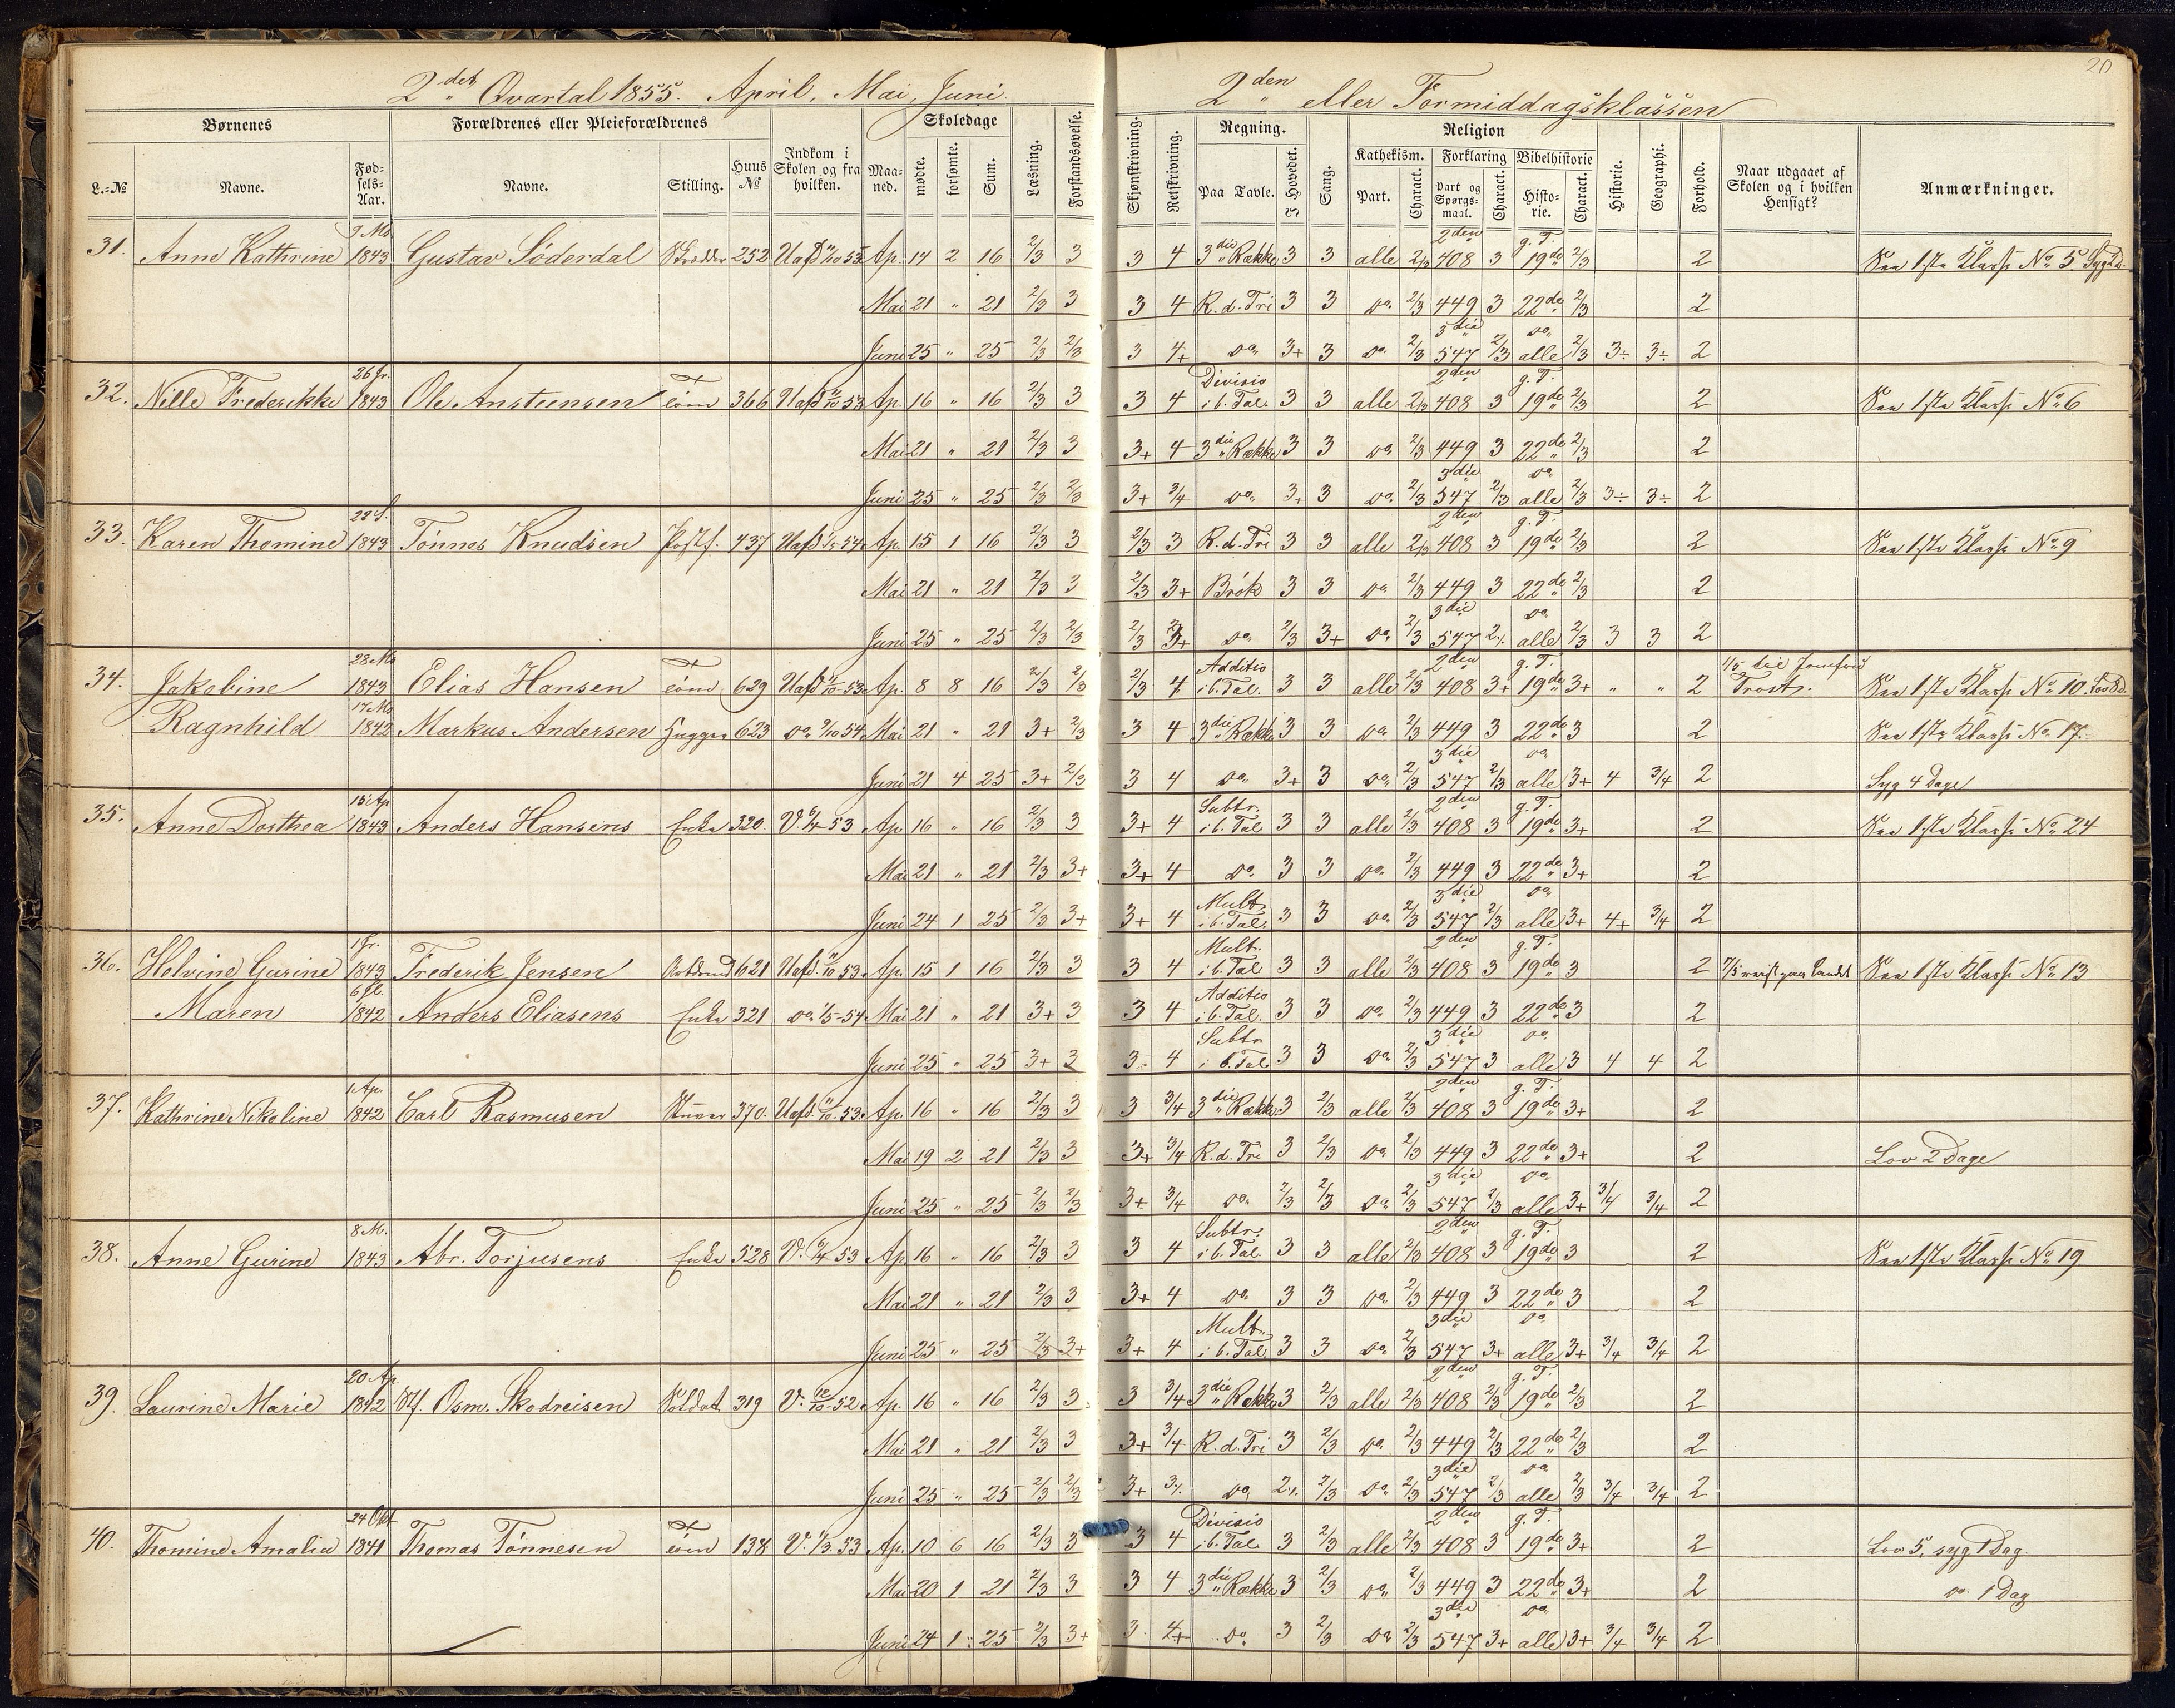 2det Qvartal 1855. April, Mai, Juni.
2den eller Formiddagsklassen
20
Børnenes
Forældrenes eller Pleieforældrenes
Skoledage
L.-№ Navne. Fødsels-Aar. Navne. Stilling. Huus № Indkom i Skolen og fra hvilken. Maaned. mødte. forsømte. Sum. Læsning. Forstandsøvelse.
Skjønskrivning. Retskrivning. Regning. Paa Tavle. I Hovedet. Sang. Religion Kathekism. Part. Charact. Forklaring Part og Spørgsmaal. Charact. Bibelhistorie Historie. Charact. Historie. Geographi. Forhold. Naar udgaaet af Skolen og i hvilken Hensigt? Anmærkninger.
31. Anne Kathrine 9 Ma. 1843 Gustav Söderdal 252 Ap. 14 2 16 2/3 3 3 4 3die Række 3 3 alle 2/3 2den 408 3 g. T. 19de 2/3 2 1ste Klasse No 5
Mai 21 " 21 2/3 3 3 4 R. d. Tri 3 3 do 2/3 449 3 22de 2/3 2
Juni 25 " 25 2/3 2/3 3 4+ do 3+ 3 do 2/3 3die 547 2/3 do alle 2/3 3÷ 3÷ 2
32. Nille Frederikke 26 Jr. 1843 Ole Anstensen Töm 366 Ap. 16 " 16 2/3 3 3 4 Divisio i b. Tal. 3 3 alle 2/3 2den 408 3 g. T. 19de 2/3 2 1ste Klasse No 6
Mai 21 " 21 2/3 3 3+ 4 3die Række 3 3 do 2/3 449 3 22de 2/3 2
Juni 25 " 25 2/3 2/3 3+ 3/4 do 3+ 3 do 2/3 3die 547 2/3 do alle 2/3 3÷ 3÷ 2
33. Karen Thomine 1843 Tönnes Knudsen 437 Ap. 15 1 16 2/3 3 2/3 3 R. d. Tri 3 3 alle 2/3 2den 408 3 g. T. 19de 2/3 2 1ste Klasse No 9
Mai 21 " 21 2/3 3 2/3 3+ Brök 3 3 do 2/3 449 3 22de 2/3 2
Juni 25 " 25 2/3 2/3 2/3 do 2/3 3+ do 2/3 3die 547 do alle 2/3 3 3 2
34. Jakobine 28 Ma 1843 Elias Hansen Töm 629 Ap. 8 8 16 2/3 2/3 2/3 4 Additio i b. Tal. 3 3 alle 2/3 2den 408 3+ g. T. 19de 3+ " " 2 1/5 til 1ste Klasse No 10.
Ragnhild 17 Ma 1842 Markus Andersen 623 do 9/10 54 Mai 21 " 21 3+ 2/3 3 4 3die Række 3 3 do 2/3 449 3 22de 3 2 1ste Klasse No 17.
Juni 21 4 25 3+ 2/3 3 4 do 3+ 3 do 2/3 3die 547 2/3 do alle 3+ 4 3/4 2 Syg 4 Dage
35. Anne Dorthea 15 Ap 1843 Anders Hansens Enke 320. Ap 16 " 16 2/3 3 3+ 4 Subtr. i b. Tal 3 3 alle 2/3 2den 408 3 g. T. 19de 3+ 2 1ste Klasse No 24
Mai 21 " 21 2/3 3+ 3+ 4 do 3 3 do 2/3 449 3 22de 3+ 2
Juni 24 1 25 2/3 3+ 3+ 4 Mult. i b. Tal. 3 3 do 2/3 3die 547 2/3 do alle 3+ 4+ 3/4 2
36. Helvine Gurine 1 Jr. 1843 Frederik Jensen 621 Ap. 15 1 16 2/3 3 3 4 Mult. i b. Tal 3 3 alle 2/3 2den 408 3 g. T. 19de 3 2 7/5 reist paa Landet 1ste Klasse No 13
Maren 1842 Anders Eliasens Enke 321 do 1/5-54 Mai 21 " 21 3+ 3 3 4 Additio i b. Tal. 3 3 do 2/3 449 3 22de 3 2
Juni 25 " 25 3+ 3 3 4 Subtr i b. Tal 3 3 do 2/3 3die 547 3 do alle 3 4 4 2
37. Kathrine Nikoline 1 Ap. 1842 Carl Rasmusen 370. Ap. 16 " 16 2/3 3 3 3/4 3die Række 3 2/3 alle 2/3 2den 408 3 g. T. 19de 3+ 2
Mai 19 2 21 2/3 3 3+ 3/4 R. d. Tri 3 2/3 do 2/3 449 3 22de 3+ 2 Lov 2 Dage
Juni 25 " 25 2/3 2/3 3+ 3/4 do 2/3 2/3 do 2/3 3die 547 2/3 do alle 3+ 3/4 3/4 2
38. Anne Gurine 8 M. 1843 Abr. Torjusens Enke 528 Ap 16 " 16 2/3 3 3 4 Subtr. i b. Tal. 3 3 alle 2/3 2den 408 3 g. T. 19de 3 2 1ste Klasse No 19
Mai 21 " 21 2/3 3 3+ 4 do 3 3 do 2/3 449 3 22de 3 2
Juni 25 " 25 2/3 3+ 3+ 4 Mult. i b. Tal 3 3 do 2/3 3die 547 3+ do alle 3+ 3/4 3/4 2
39. Laurine Marie 20 Ap 1842 Osm. Skodreisen Soldat 319 Ap. 16 " 16 2/3 3 3 3/4 3die Række 3 2/3 alle 2/3 2den 408 2/3 g. T. 19de 2/3 2
Mai 21 " 21 2/3 3 3+ 3/4 R. d. Tri 3 2/3 do 2/3 449 2/3 22de 2/3 2
Juni 25 " 25 2/3 2/3 3+ do 2/3 do 2/3 3die 547 2/3 do alle 2/3 3/4 3/4 2
40. Thomine Amalia 24 Okt 1841 Thomas Tönnesen Töm 138 Ap. 10 6 16 2/3 3 3 4 Divisio i b. Tal 3 2/3 alle 2/3 2den 408 3 g. T. 19de 3+ 2 Lov 5, syg 1 Dag.
Mai 20 1 21 2/3 3 3 4 3die Række 3 2/3 do 2/3 449 3 22de 3+ 2 do 1 Dag
Juni 24 1 25 2/3 3+ 3 4+ do 3 2/3 do 2/3 3die 547 3+ do alle 3+ 3/4 3/4 2